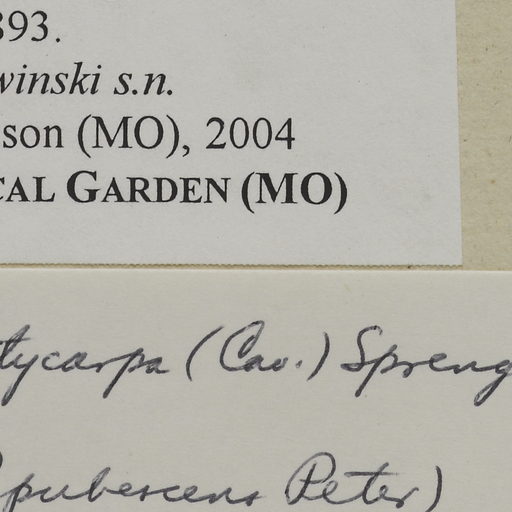 893.
winski s.n.
son (MO), 2004
CAL GARDEN (MO)
tycarpa (Cav.) Spreng
pubescens Peter)